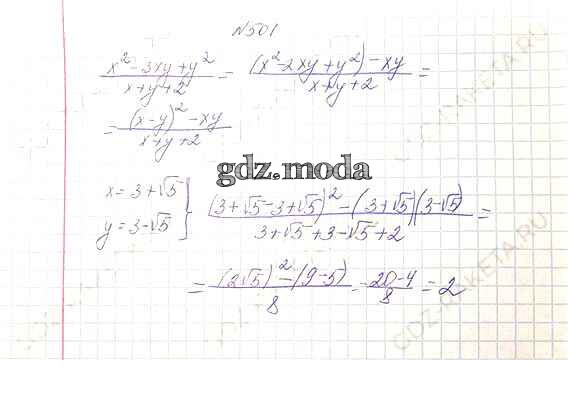 N501
(x² - 3xy + y²)/(x + y + 2) = ((x² - 2xy + y²) - xy)/(x + y + 2) =
= ((x - y)² - xy)/(x + y + 2)
gdz.moda
x = 3 + √5
y = 3 - √5 } ((3 + √5 - 3 + √5)² - (3 + √5)(3 - √5))/(3 + √5 + 3 - √5 + 2) =
= ((2√5)² - (9 - 5))/8 = (20 - 4)/8 = 2
GDZ-RAKETA.RU